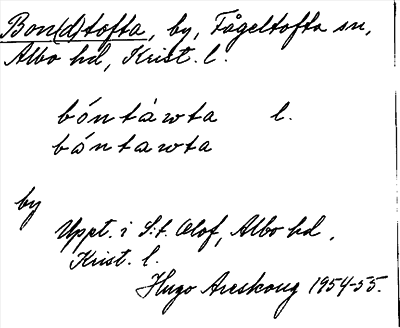 Bon(d)tofta, by, Fågeltofta sn,
Albo hd, Krist. l.
bóntàwta l.
bántawta
by
Uppt. i S:t. Olof, Albo hd,
Krist. l.
Hugo Areskoug 1954-55.